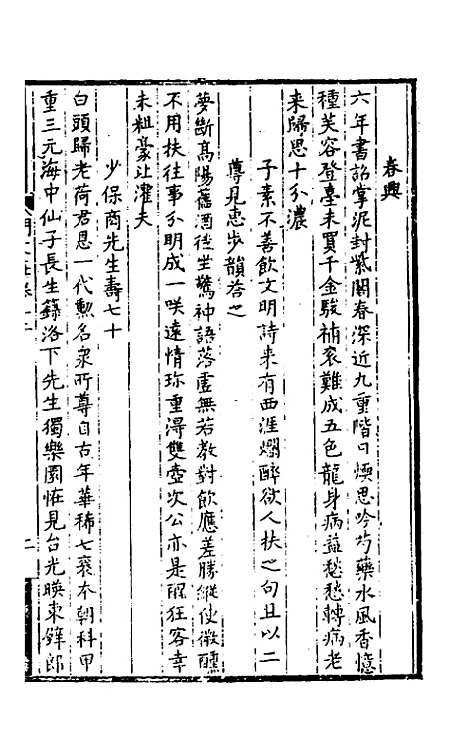 春興
六年書詔掌泥封紫閣春深近九重階日煖思吟芍藥水風香憶
種芙容登臺未買千金駿補衮難成五色龍身病益愁愁轉病老
来歸思十分濃
子素不善飲文明詩来有西涯爛醉欲人扶之句且以二
蓴見惠步韻答之
夢斷髙陽舊酒徒坐驚神語落虛無若教對飲應差勝縱使微醺
不用扶往事分明成一咲遠情珎重淂雙壺次公亦是醒狂客幸
未粗豪让灌夫
少保商先生壽七十
白頭歸老荷君恩一代勲名衆所尊自古年華稀七袠本朝科甲
重三元海中仙子長生籙洛下先生獨樂園恠見台光暎東郎